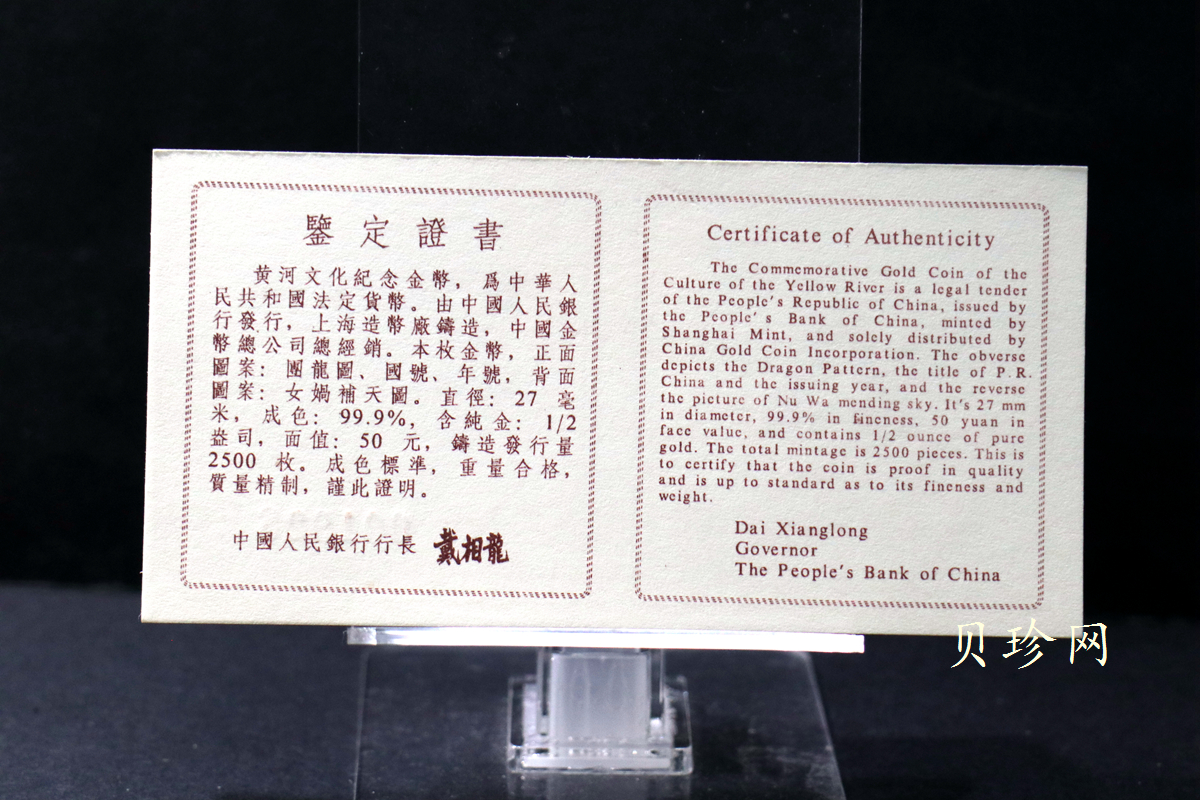 鑒定證書
黄河文化紀念金幣，爲中華人
民共和國法定貨幣。由中國人民銀
行發行，上海造幣廠鑄造，中國金
幣總公司總經銷。本枚金幣，正面
圖案：團龍圖、國號、年號，背面
圖案：女媧補天圖。直徑：27 毫
米，成色：99.9%，含純金：1/2
盎司，面值：50 元，鑄造發行量
2500 枚。成色標準，重量合格，
質量精制，謹此證明。
中國人民銀行行長 戴相龍
Certificate of Authenticity
The Commemorative Gold Coin of the
Culture of the Yellow River is a legal tender
of the People's Republic of China, issued by
the People' s Bank of China, minted by
Shanghai Mint, and solely distributed by
China Gold Coin Incorporation. The obverse
depicts the Dragon Pattern, the title of P.R.
China and the issuing year, and the reverse
the picture of Nu Wa mending sky. It's 27 mm
in diameter, 99.9% in fineness, 50 yuan in
face value, and contains 1/2 ounce of pure
gold. The total mintage is 2500 pieces. This is
to certify that the coin is proof in quality
and is up to standard as to its fineness and
weight.
Dai Xianglong
Governor
The People's Bank of China
贝珍网